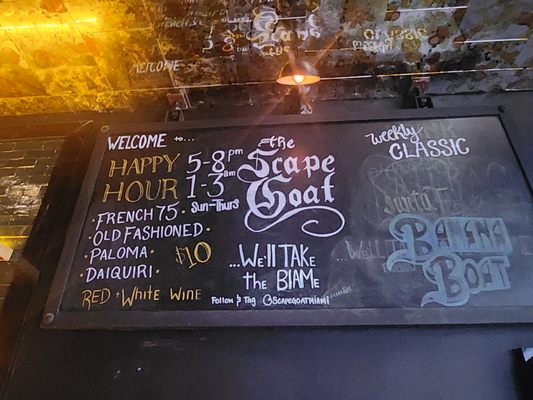 WELCOME to...
HAPPY HOUR
5-8pm
1-3am
Sun-Thurs
• FRENCH 75 •
• OLD FASHIONED •
• PALOMA •
• DAIQUIRI •
$10
RED + WHITE WINE
the
Scape
Goat
...WE'LL TAKE
the BLAME
FOLLOW & TAG @SCAPEGOATMIAMI
Weekly
CLASSIC
BANANA
BOAT